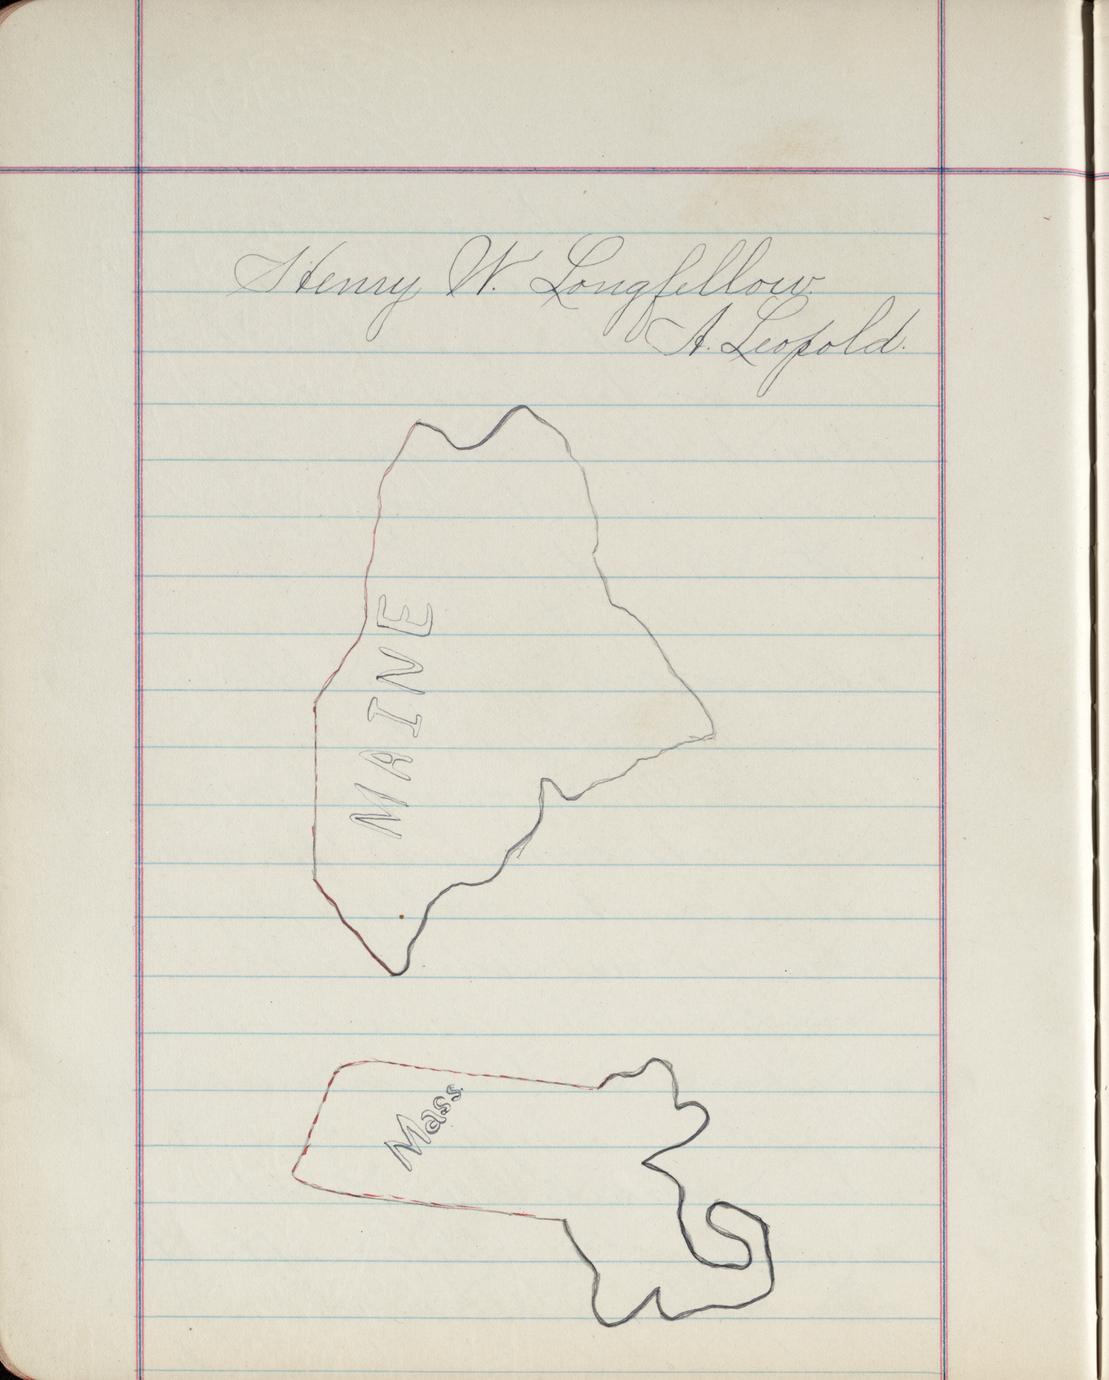 Henry W. Longfellow.
A. Leopold.
MAINE
Mass.